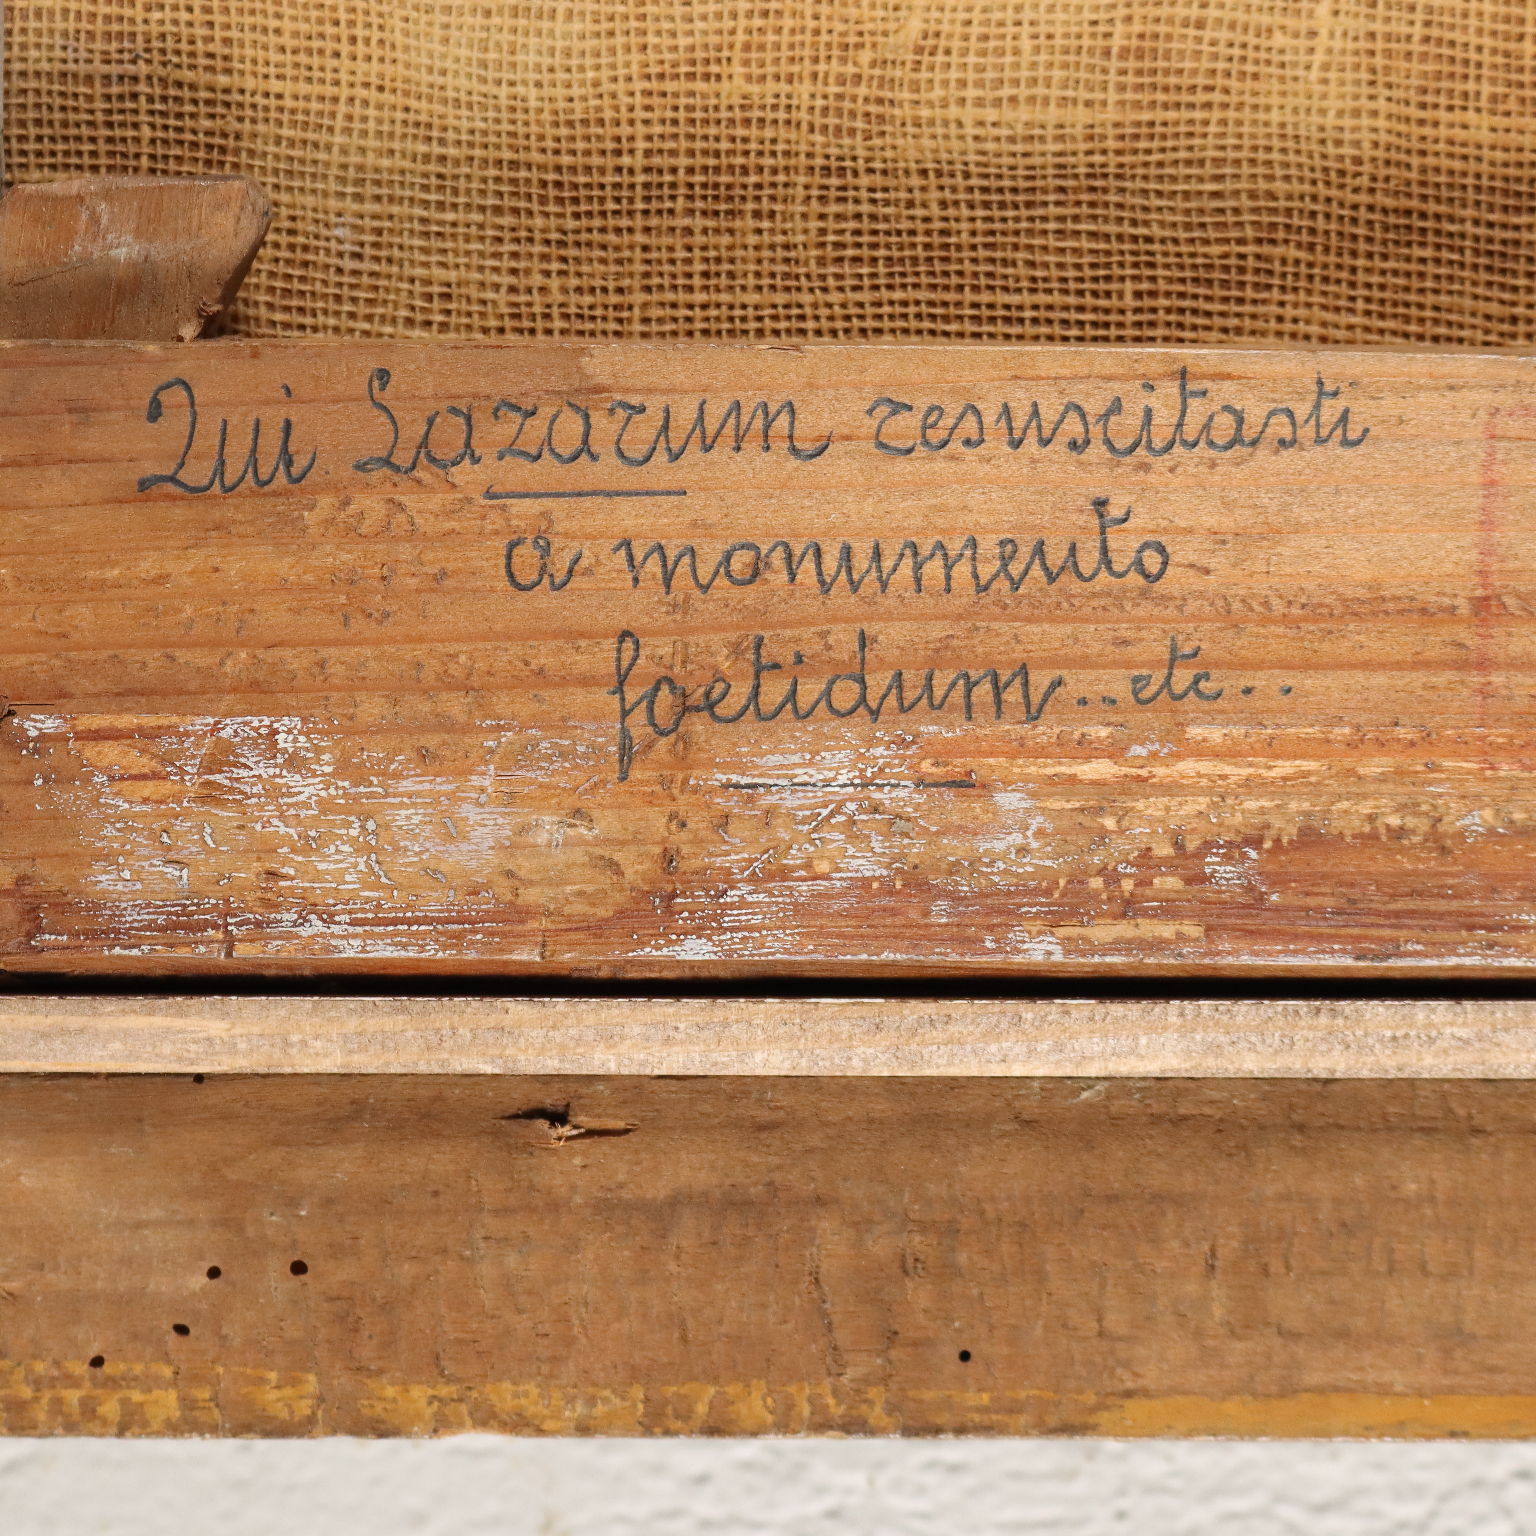 Qui Lazarum resuscitasti
a monumento
foetidum..etc..